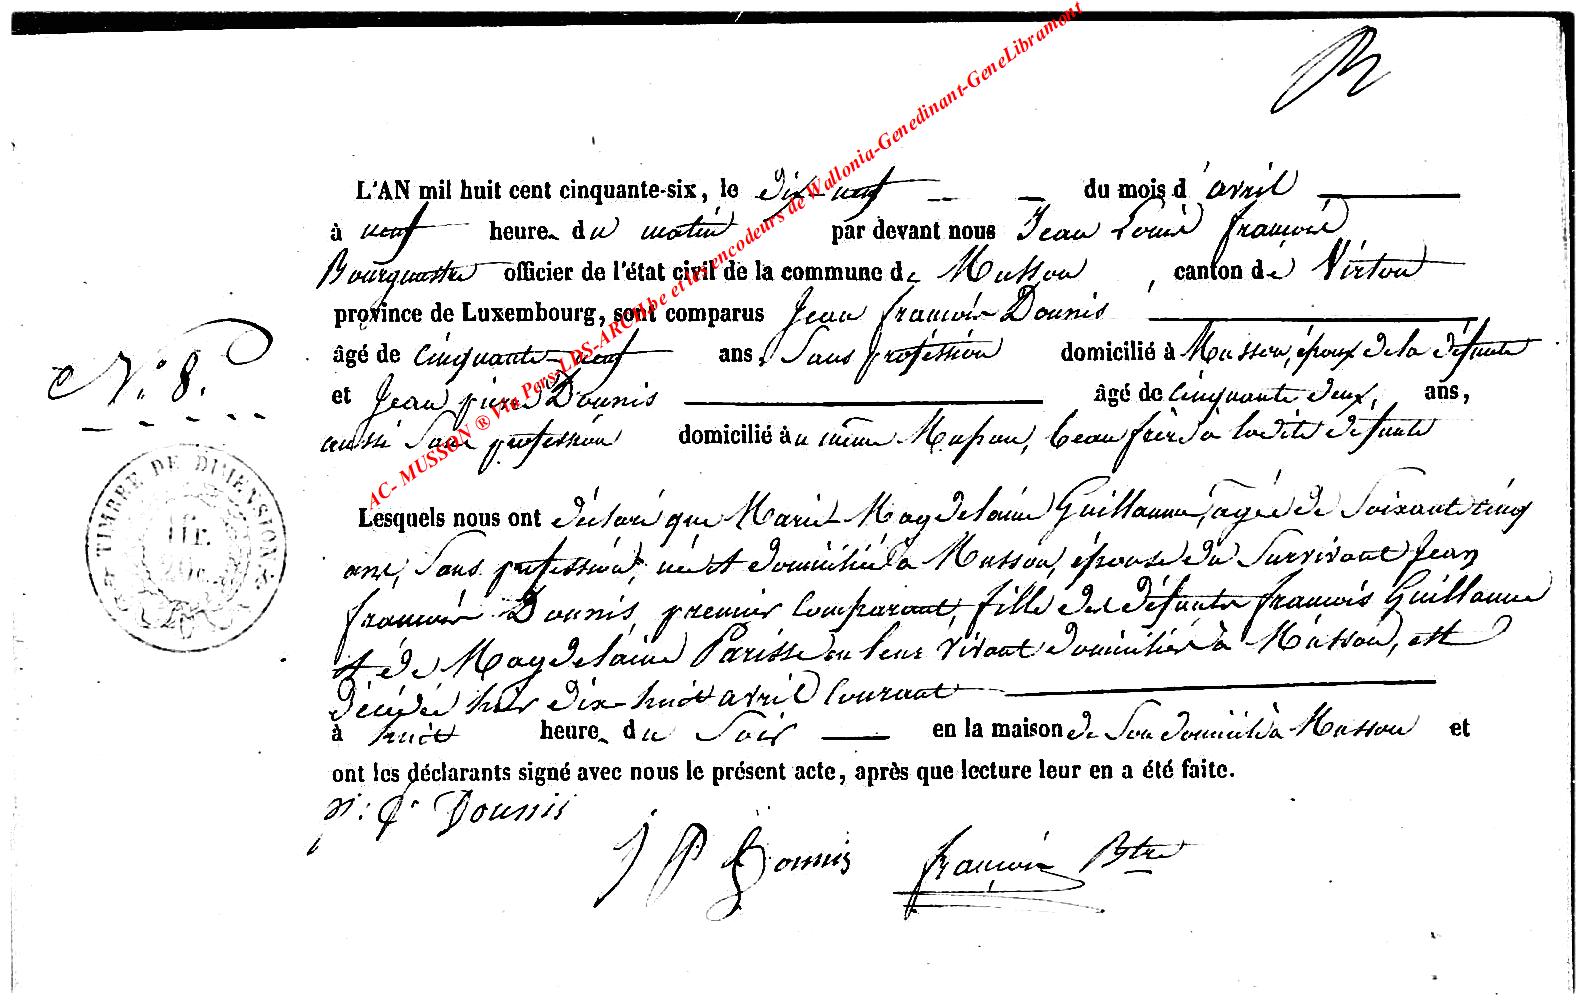 L'AN mil huit cent cinquante-six, le dix-neuf du mois d'avril
à neuf heure du matin par devant nous Jean Louis françois
Bourgmestre officier de l'état civil de la commune de Musson, canton de Virton
province de Luxembourg, sont comparus Jean françois Dounis
âgé de cinquante-neuf ans, Sans profession domicilié à Musson, époux de la défunte
N.° 8.
et Jean pierre Dounis âgé de cinquante deux, ans,
aussi Sans profession domicilié au même Musson, beau frère à ladite défunte
TIMBRE DE DIMENSION
1 fr.
Lesquels nous ont déclaré que Marie-Magdelaine Guillaume, agée de Soixante cinq
ans, Sans profession, née et domiciliée à Musson, épouse du Survivant Jean
françois Dounis, premier Comparant, fille des défunts françois Guillaume
et de Magdelaine Parisse en leur vivant domiciliés à Musson, est
décédée hier dix-huit avril Courant
à huit heure du Soir en la maison de Son domicil à Musson et
ont les déclarants signé avec nous le présent acte, après que lecture leur en a été faite.
Dounis
J P Dounis françois Btre
AC- MUSSON ® Via Pers-LDS-ARCH.be et les encodeurs de Wallonia-Genedinant-GeneLibramont